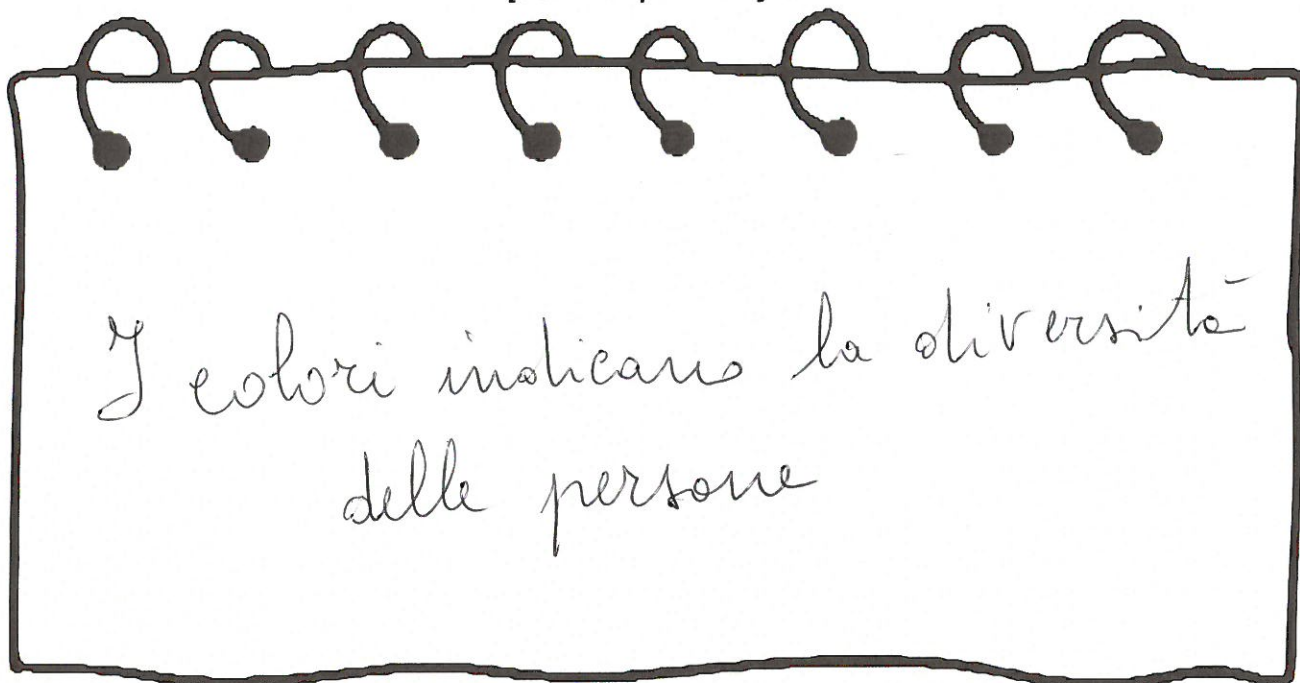 I colori indicano la diversità
delle persone